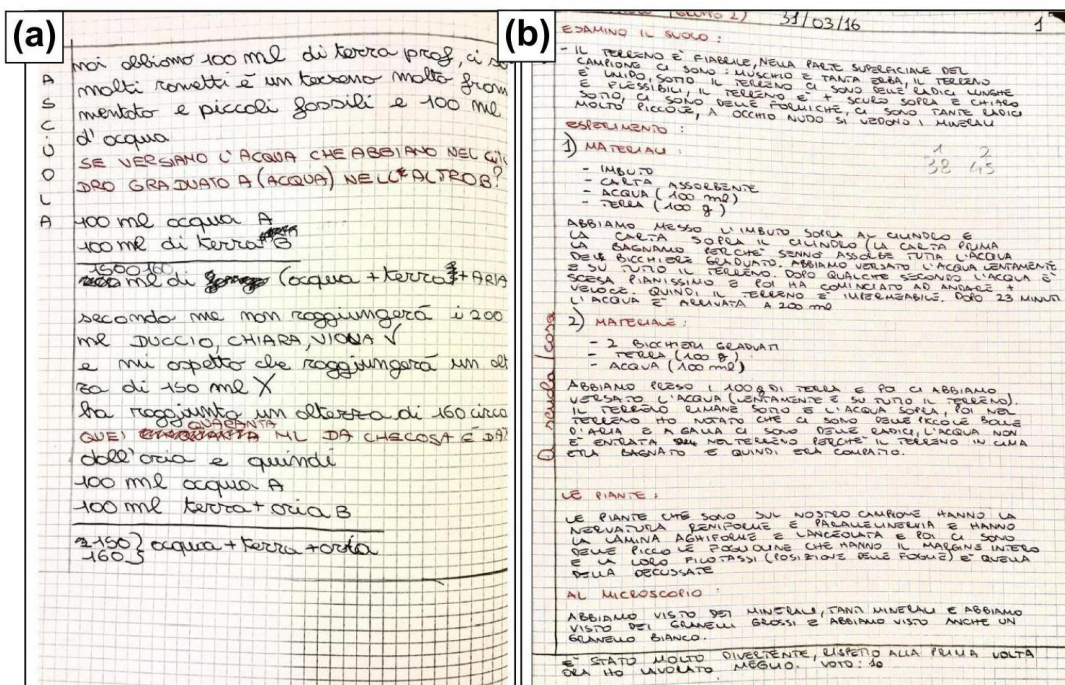 (a)
A SCUOLA
noi abbiamo 100 ml di terra prof, ci so
molti rametti è un terreno molto fram
mentato e piccoli fossili e 100 ml
d'acqua
SE VERSIAMO L'ACQUA CHE ABBIAMO NEL CILI
DRO GRADUATO A (ACQUA) NELL'ALTRO B?
100 ml acqua A
100 ml di terra B
150 160
ml di (acqua + terra + ARIA
secondo me non raggiungerà i 200
ml DUCCIO, CHIARA, VIOLA √
e mi aspetto che raggiungerà un alt
za di 150 ml X
ha raggiunto un altezza di 160 circa
QUARANTA
QUEI ML DA CHE COSA È DA
dall'aria e quindi
100 ml acqua A
100 ml terra + aria B
150 } acqua + terra + aria
160 }
(b)
(GRUPPO 2) 31/03/16 1
ESAMINO IL SUOLO :
- IL TERRENO È FIABRILE, NELLA PARTE SUPERFICIALE DEL
CAMPIONE CI SONO : MUSCHIO E TANTA ERBA, IL TERRENO
È UMIDO, SOTTO IL TERRENO CI SONO DELLE RADICI LUNGHE
E FLESSIBILI, IL TERRENO È + SCURO SOPRA E CHIARO
SOTTO, CI SONO DELLE FORMICHE, CI SONO TANTE RADICI
MOLTO PICCOLE, A OCCHIO NUDO SI VEDONO I MINERALI
ESPERIMENTO :
1) MATERIALI :
1 2
38 45
- IMBUTO
- CARTA ASSORBENTE
- ACQUA (100 ml)
- TERRA (100 g)
ABBIAMO MESSO L'IMBUTO SOPRA AL CILINDRO E
LA CARTA SOPRA IL CILINDRO (LA CARTA PRIMA
LA BAGNAMO PERCHÈ SENNÒ ASSORBE TUTTA L'ACQUA
DEL BICCHIERE GRADUATO. ABBIAMO VERSATO L'ACQUA LENTAMENTE
E SU TUTTO IL TERRENO. DOPO QUALCHE SECONDO L'ACQUA È
SCESA PIANISSIMO E POI HA COMINCIATO AD ANDARE +
VELOCE. QUINDI IL TERRENO È IMPERMEABILE. DOPO 23 MINUTI
L'ACQUA È ARRIVATA A 200 ml
2) MATERIALE :
- 2 BICCHIERI GRADUATI
- TERRA (100 g)
- ACQUA (100 ml)
ABBIAMO PRESO I 100 g DI TERRA E POI CI ABBIAMO
VERSATO L'ACQUA (LENTAMENTE E SU TUTTO IL TERRENO).
IL TERRENO RIMANE SOTTO E L'ACQUA SOPRA, POI NEL
TERRENO HO NOTATO CHE CI SONO DELLE PICCOLE BOLLE
D'ARIA E A GALLA CI SONO DELLE RADICI, L'ACQUA NON
È ENTRATA NEL TERRENO PERCHÈ IL TERRENO IN CIMA
ERA BAGNATO E QUINDI ERA COMPATTO.
LE PIANTE :
LE PIANTE CHE SONO SUL NOSTRO CAMPIONE HANNO LA
NERVATURA PENIFORME E PARALLELINERVIA E HANNO
LA LAMINA AGHIFORME E LANCEOLATA E POI CI SONO
DELLE PICCOLE FOGLIOLINE CHE HANNO IL MARGINE INTERO
E LA LORO FILOTASSI (POSIZIONE DELLE FOGLIE) È QUELLA
DELLA DECUSSATE
AL MICROSCOPIO :
ABBIAMO VISTO DEI MINERALI, TANTI MINERALI E ABBIAMO
VISTO DEI GRANELLI GROSSI E ABBIAMO VISTO ANCHE UN
GRANELLO BIANCO.
È STATO MOLTO DIVERTENTE, RISPETTO ALLA PRIMA VOLTA
ORA HO LAVORATO MEGLIO. VOTO : 10